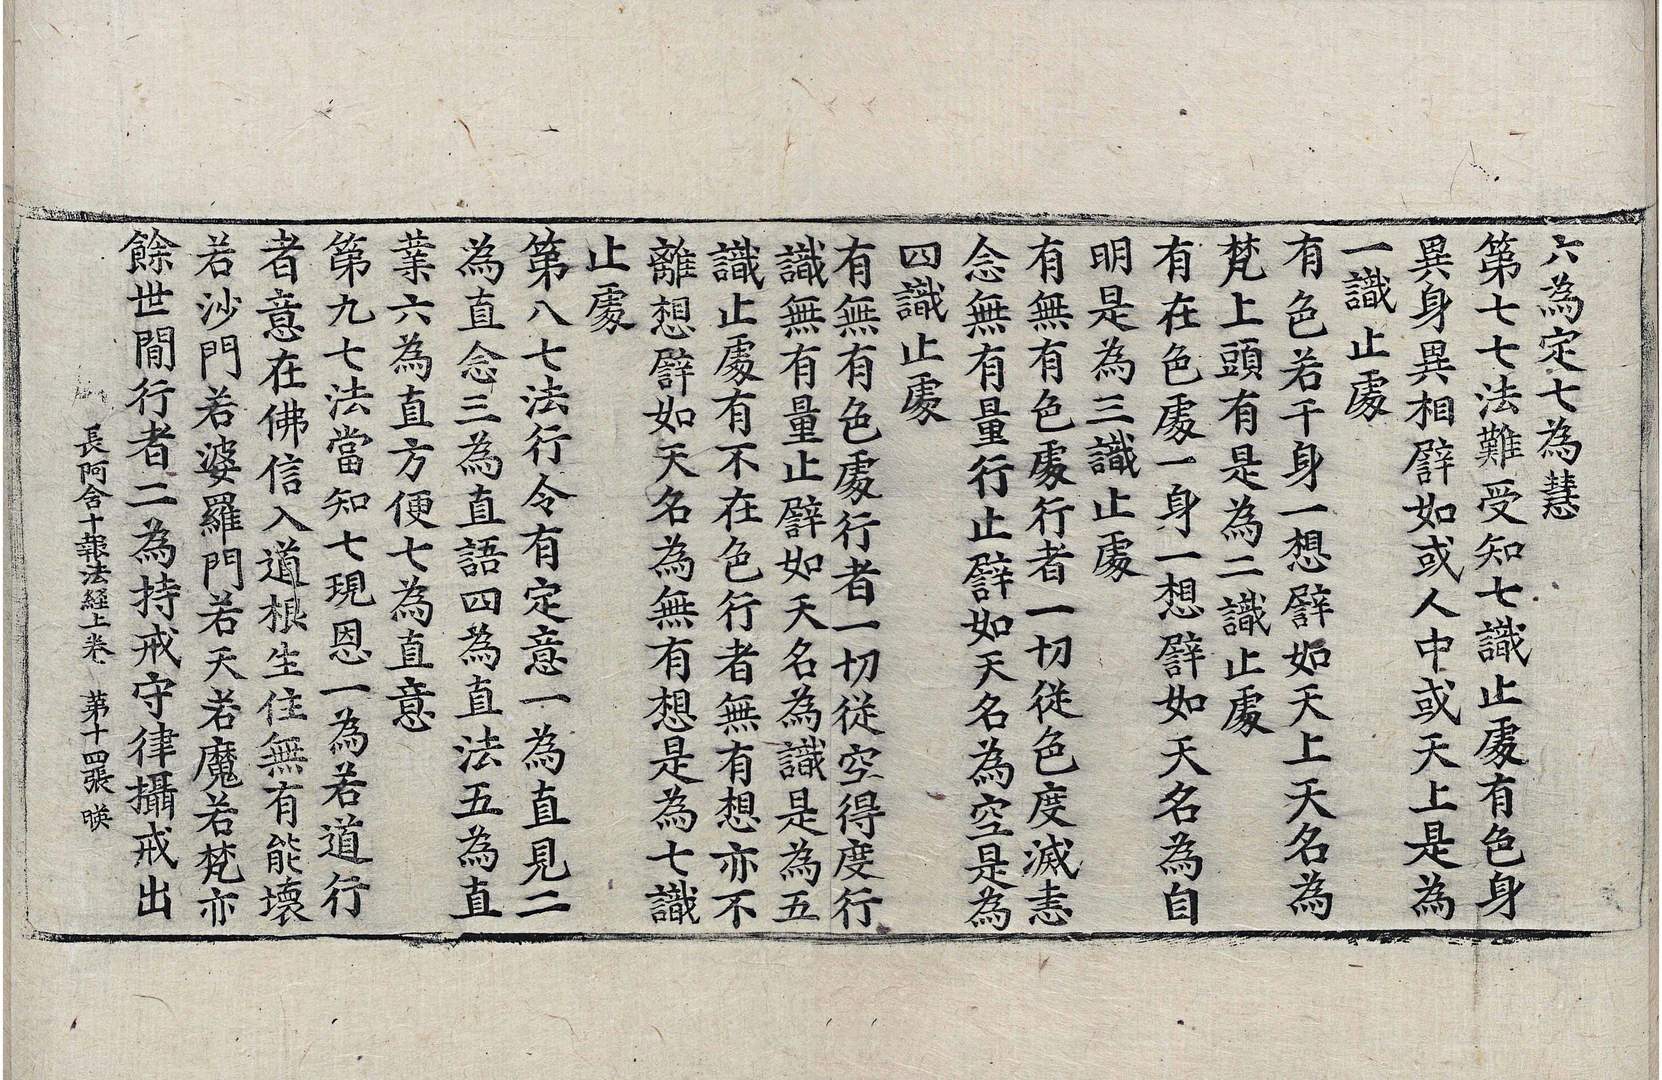 六為定七為慧
第七七法難受知七識止處有色身
異身異相譬如或人中或天上是為
一識止處
有色若干身一想譬如天上天名為
梵上頭有是為二識止處
有在色處一身一想譬如天名為自
明是為三識止處
有無有色處行者一切從色度滅恚
念無有量行止譬如天名為空是為
四識止處
有無有色處行者一切從空得度行
識無有量止譬如天名為識是為五
識止處有不在色行者無有想亦不
離想譬如天名為無有想是為七識
止處
第八七法行令有定意一為直見二
為直念三為直語四為直法五為直
業六為直方便七為直意
第九七法當知七現恩一為若道行
者意在佛信入道根生住無有能壞
若沙門若婆羅門若天若魔若梵亦
餘世間行者二為持戒守律攝戒出
長阿含十報法經上卷 第十四張 暎